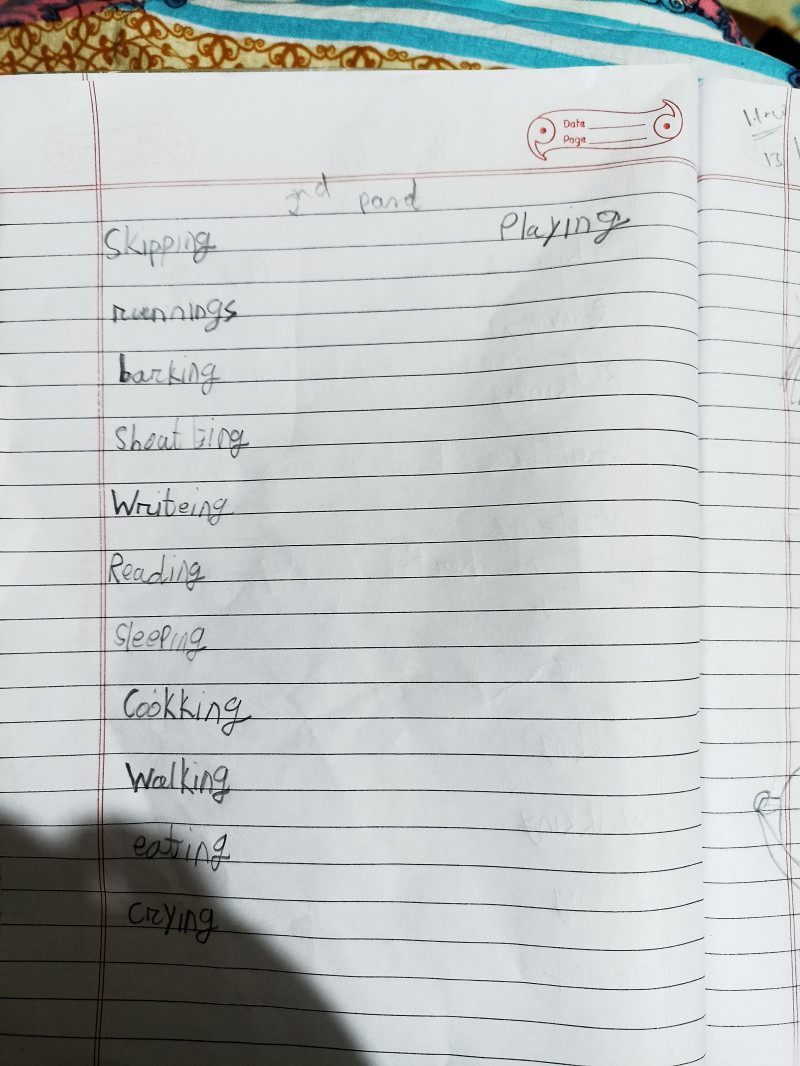 Date
Page
2nd pard
Skipping Playing
runnings
barking
Shouting
Writeing
Reading
Sleeping
Cookking
Walking
eating
crying
13